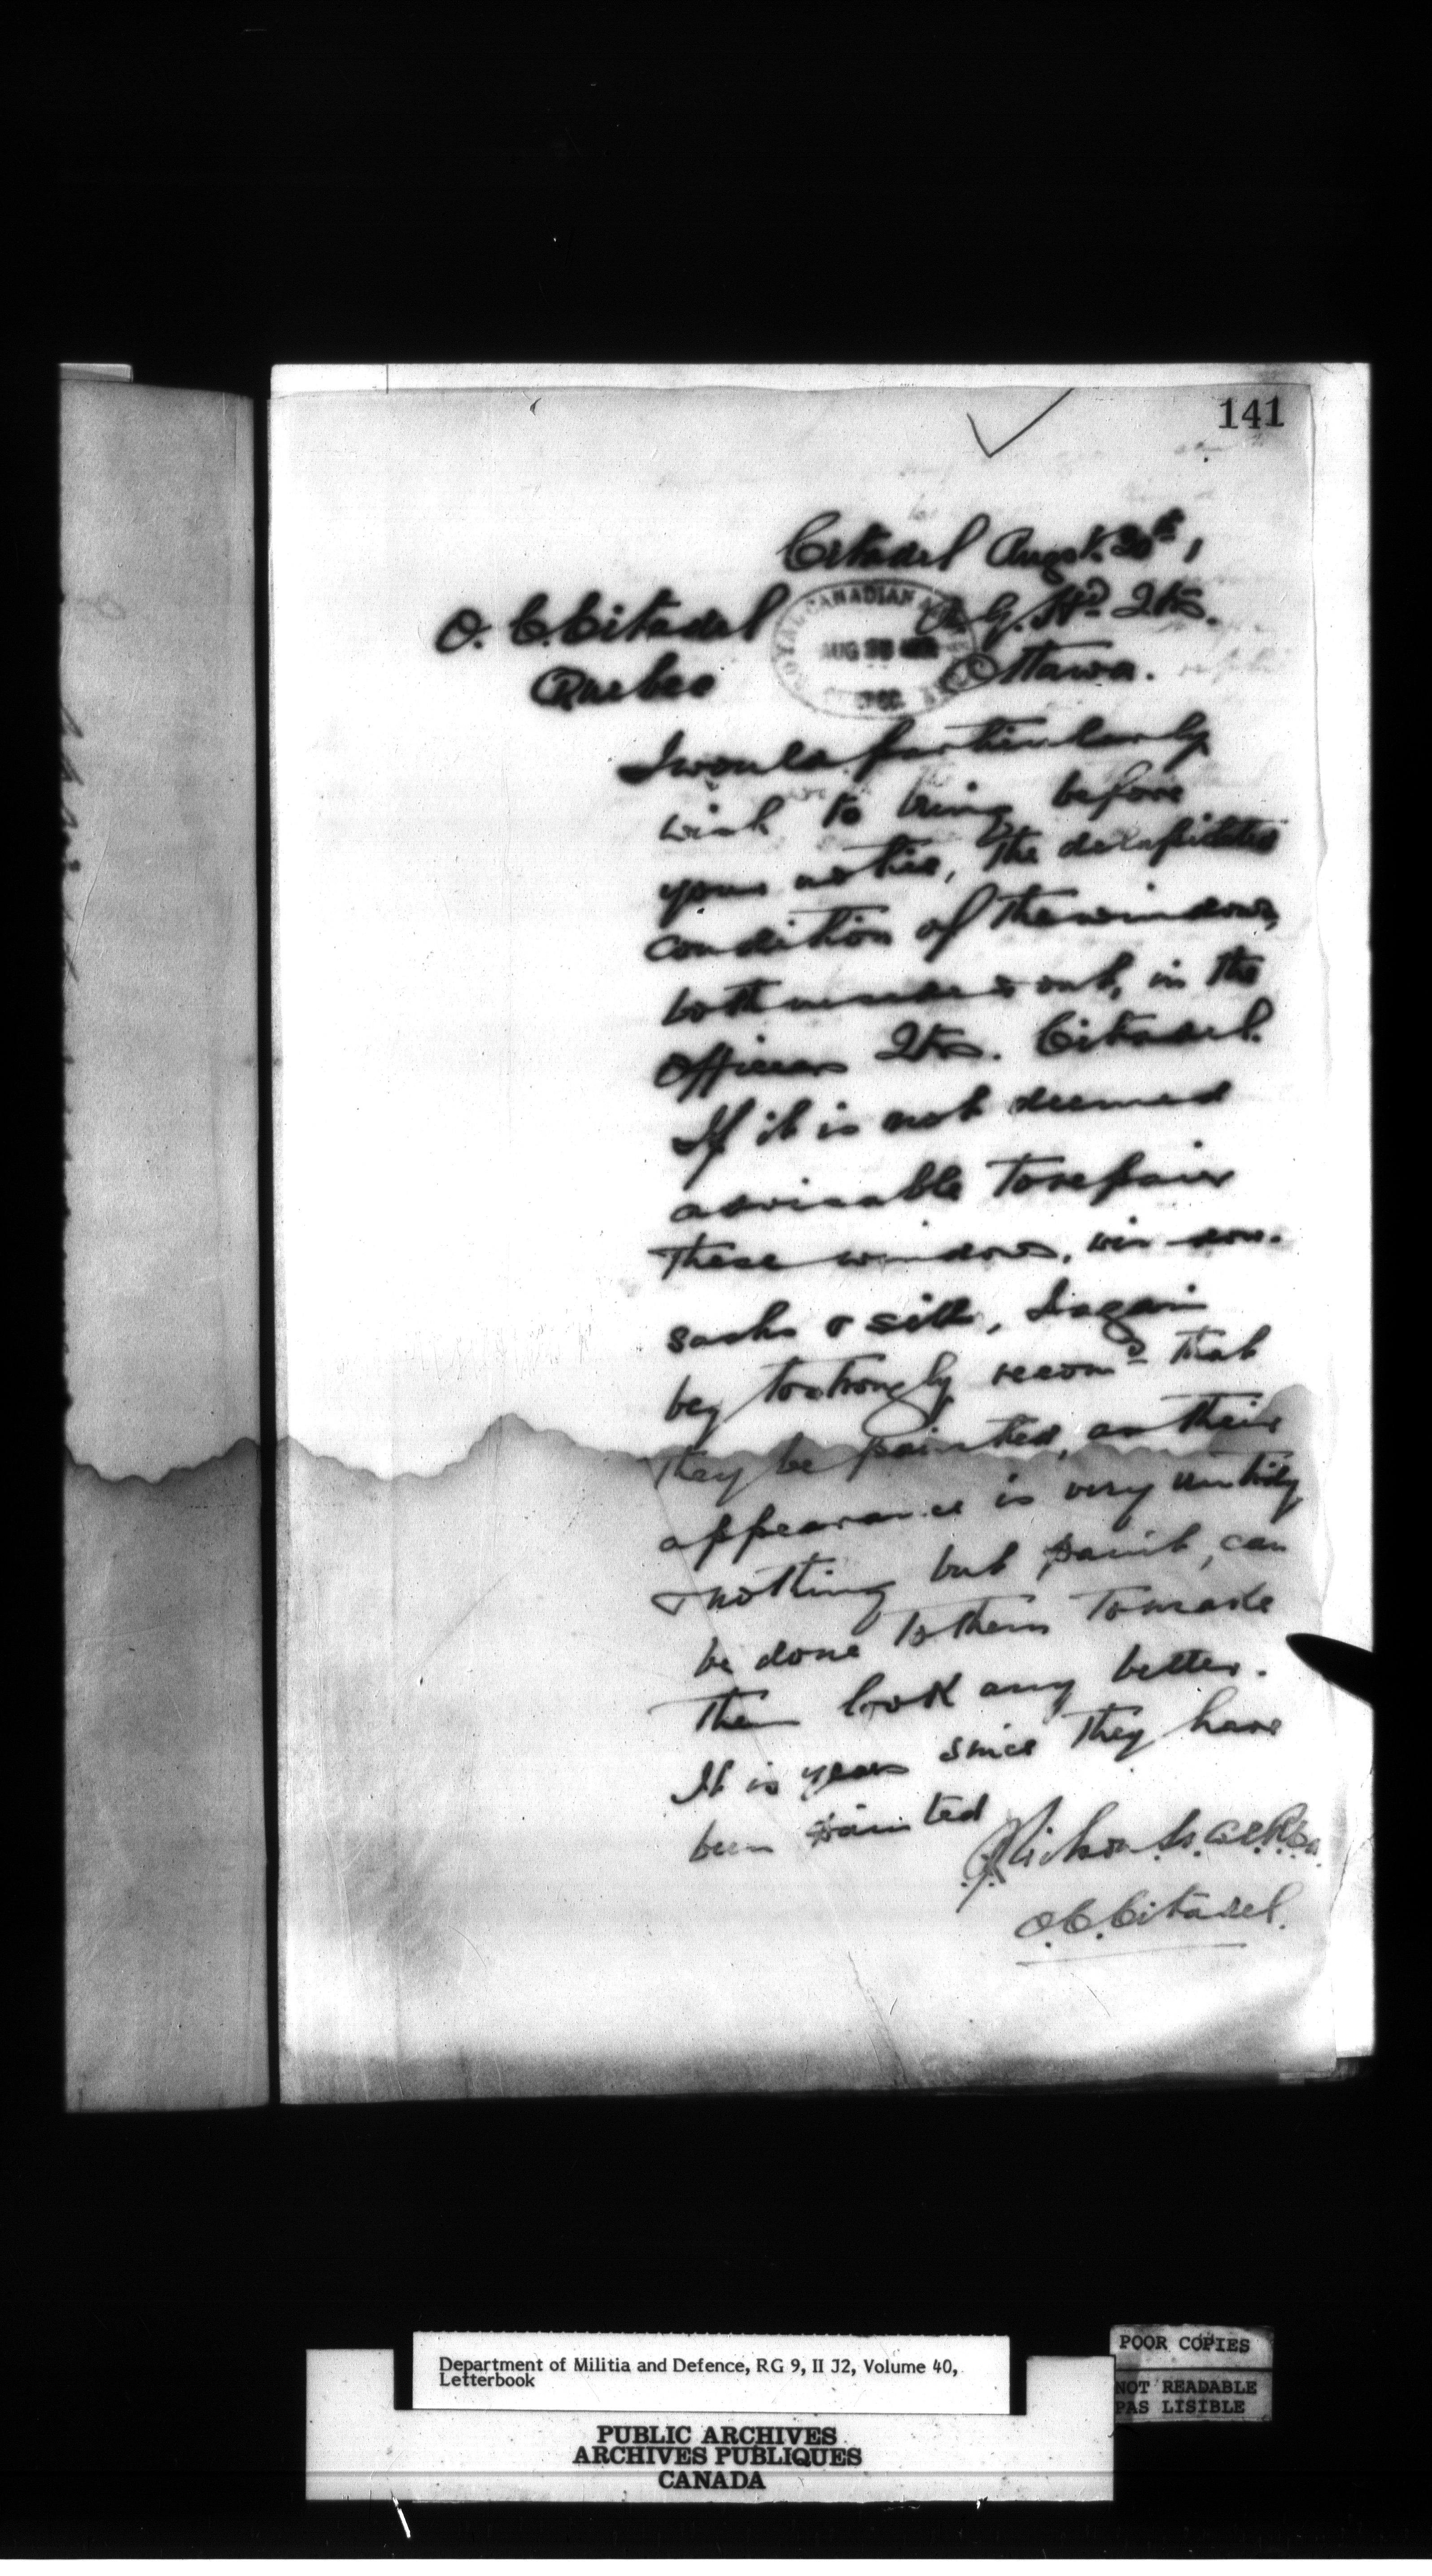 141
Citadel Augst. 30th,
O. C. Citadel
A. G. Hd. Qtrs.
Quebec
Ottawa.
ROYAL CANADIAN
AUG
I would particularly
wish to bring before
your notice, the delapidated
condition of the windows,
both inside & out, in the
Officers Qtrs. Citadel.
If it is not deemed
advisable to repair
these windows, window-
sashs & sills, I again
beg to strongly recomd that
they be painted, as their
appearance is very untidy
& nothing but paint, can
be done to them to make
them look any better.
It is years since they have
been painted
O. C. Citadel.
Department of Militia and Defence, RG 9, II J2, Volume 40,
Letterbook
POOR COPIES
NOT READABLE
PAS LISIBLE
PUBLIC ARCHIVES
ARCHIVES PUBLIQUES
CANADA